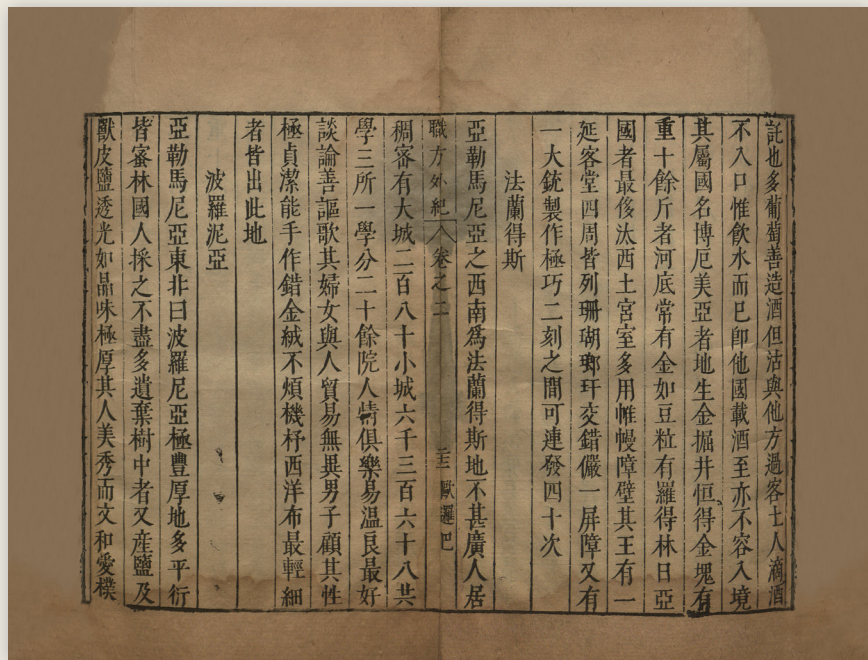 託也多葡萄善造酒但沽與他方過客土人滴酒
不入口惟飲水而已卽他國載酒至亦不容入境
其屬國名博厄美亞者地生金掘井恒得金塊有
重十餘斤者河底常有金如豆粒有羅得林日亞
國者最侈汰西土宮室多用帷幔障壁其王有一
延客堂四周皆列珊瑚瑯玕交錯儼一屏障又有
一大銃製作極巧二刻之間可連發四十次
法蘭得斯
亞勒馬尼亞之西南爲法蘭得斯地不甚廣人居
職方外紀 卷之二 歐邏巴
稠密有大城二百八十小城六千三百六十八共
學三所一學分二十餘院人情俱樂易溫良最好
談論善謳歌其婦女與人貿易無異男子顧其性
極貞潔能手作錯金絨不煩機杼西洋布最輕細
者皆出此地
波羅泥亞
亞勒馬尼亞東北曰波羅尼亞極豐厚地多平衍
皆蜜林國人採之不盡多遺棄樹中者又產鹽及
獸皮鹽透光如晶味極厚其人美秀而文和愛樸